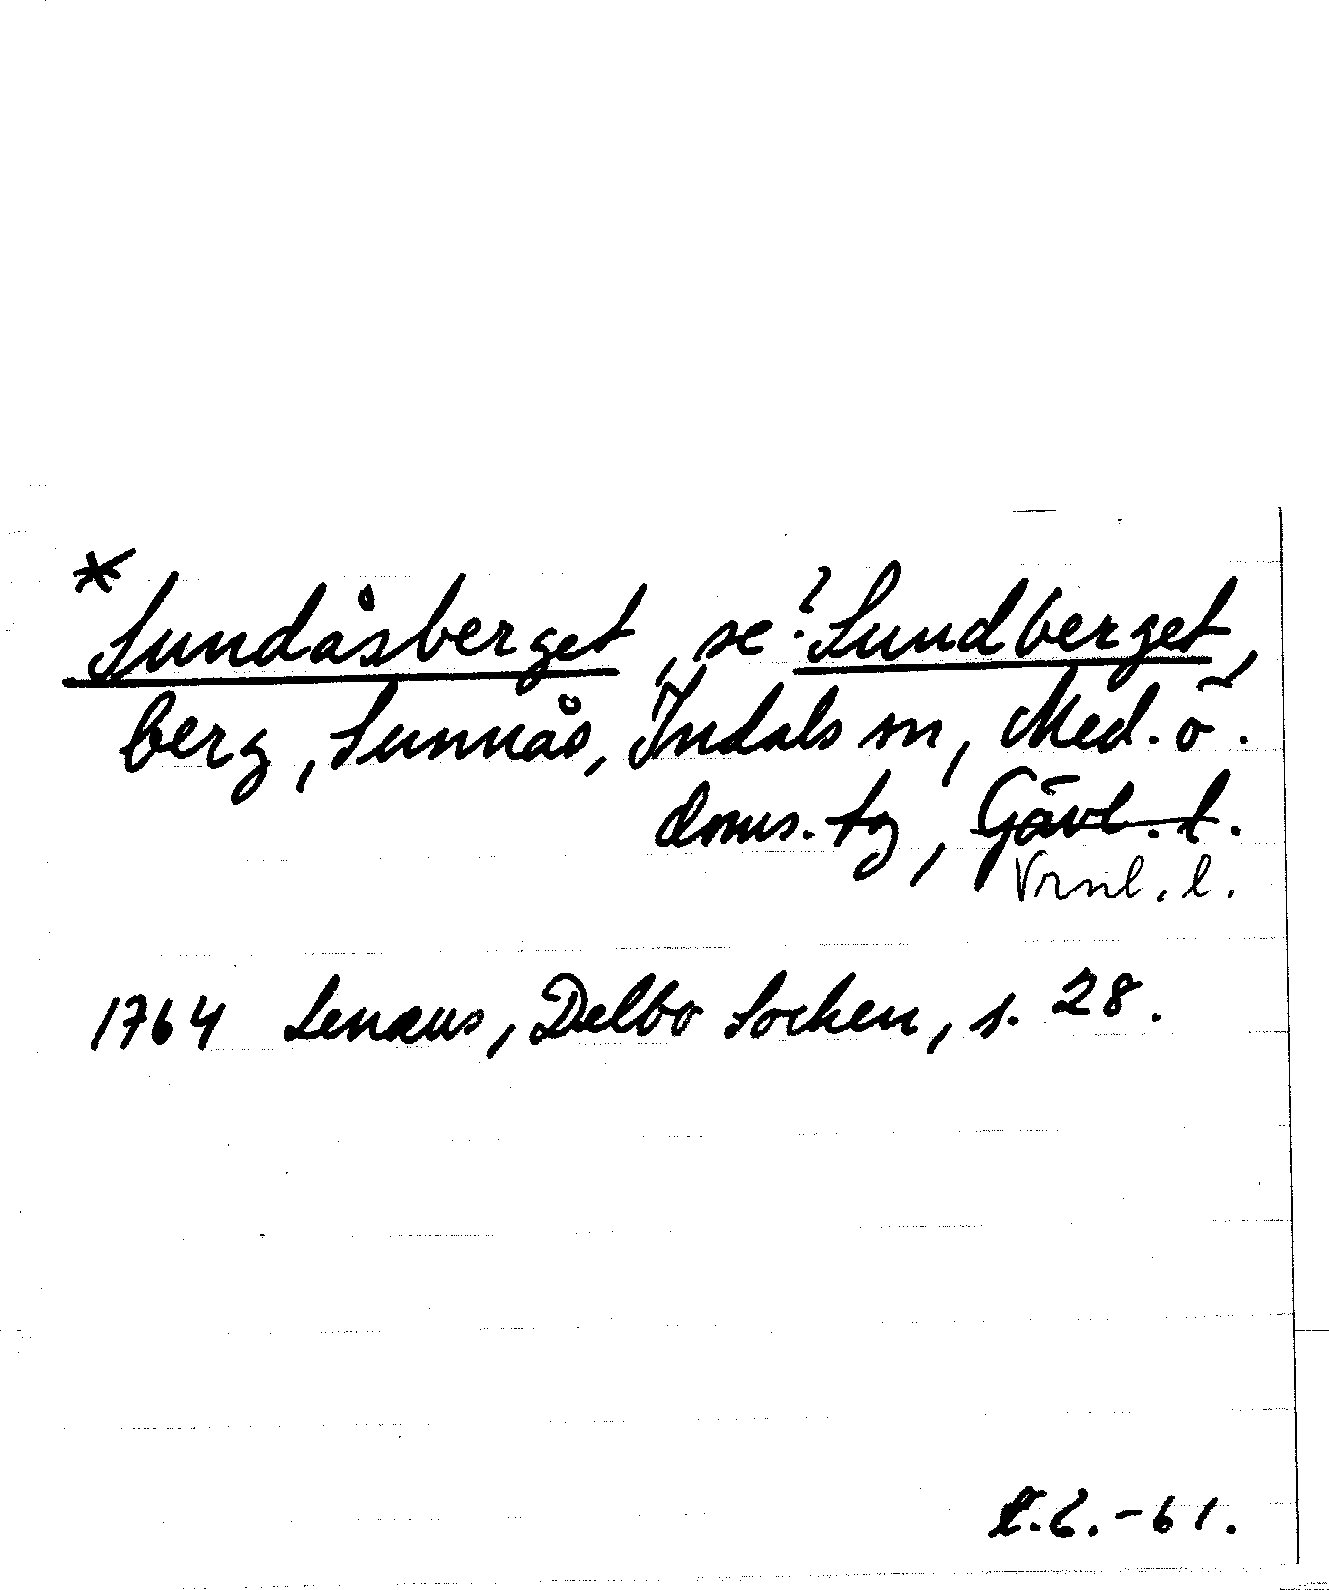 * Sundåsberget, se? Sundberget,
berg, Sunnås, Indals sn, Med. ö.
doms. tg, Gävl. l.
Vrnl. l.
1764 Lenæus, Delbo Socken, s. 28.
-61.